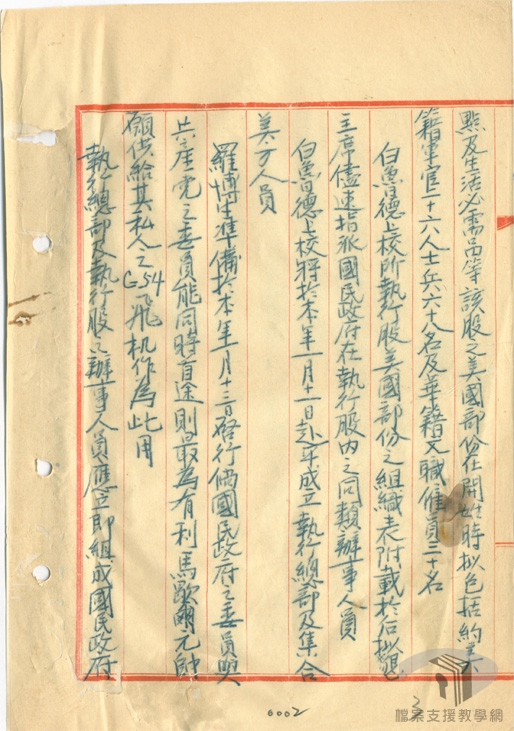 點及生活必需品等該股之美國部份在開始時擬包括約美
籍軍官二十六人士兵六十八名及華籍文職僱員三十名
白魯德上校所執行股美國部份之組織表附載於后擬懇
主席儘速指派國民政府在執行股內之同類辦事人員
白魯德上校將於本年一月十一日赴平成立執行總部及集合
美方人員
羅博生準備於本年一月十三日啓行倘國民政府之委員與
共產黨之委員能同時首途則最為有利馬歇爾元帥
願供給其私人之C-54飛机作為此用
執行總部及執行股之辦事人員應立即組成國民政府
6002
3
檔案支援教學網